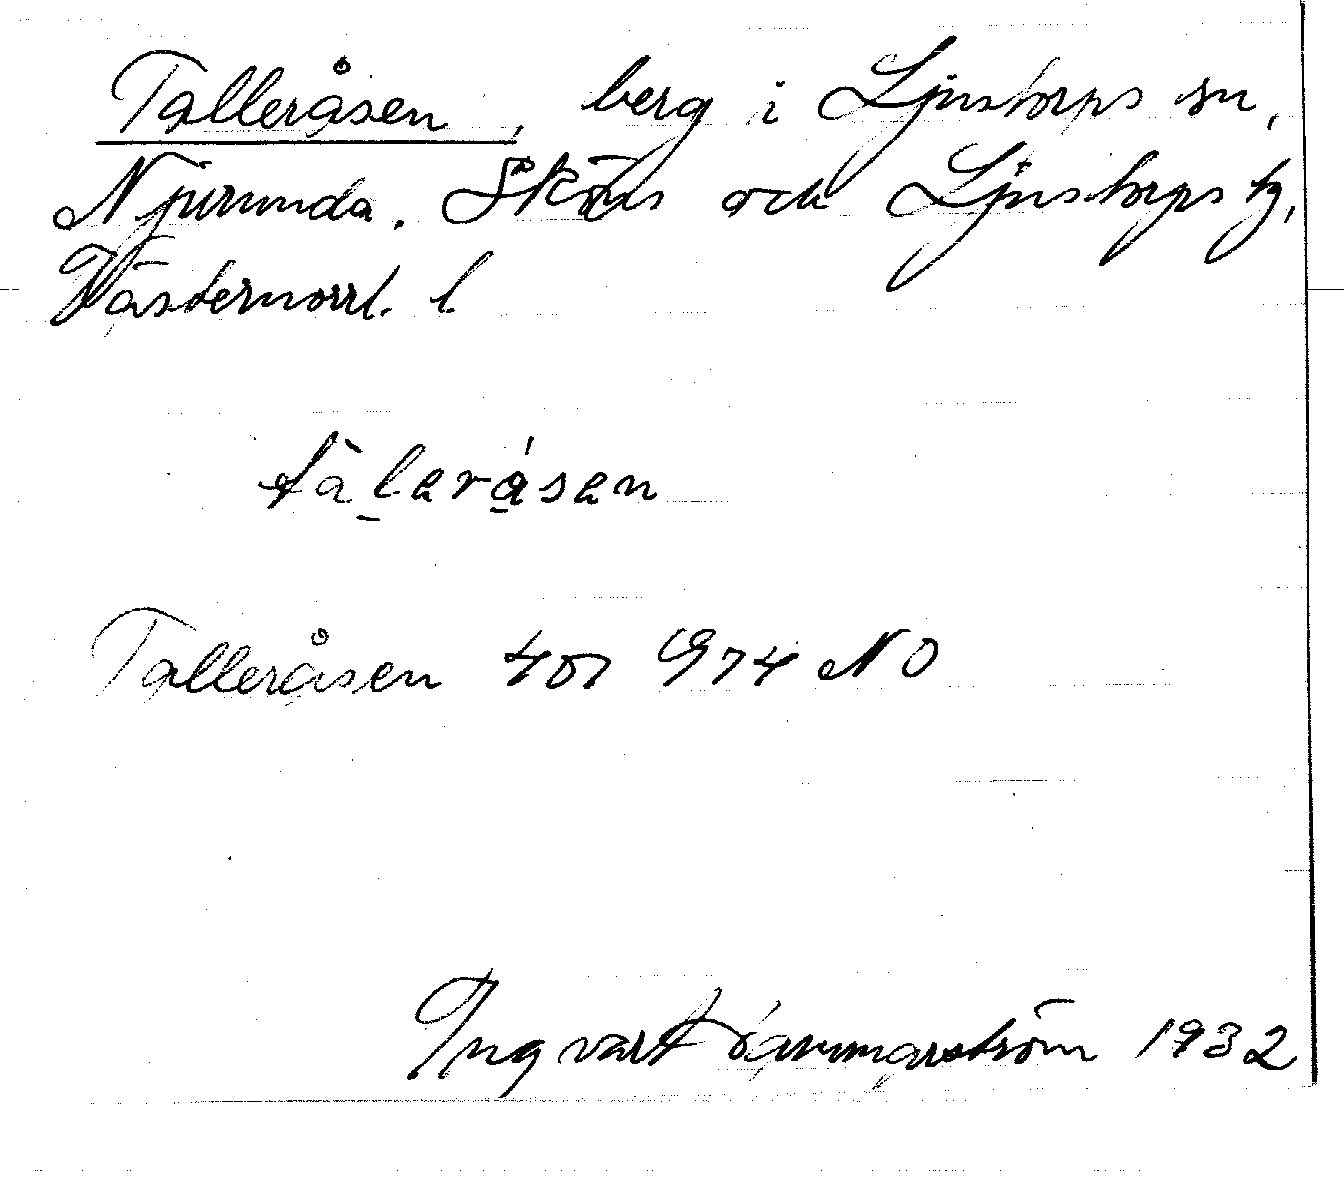 Talleråsen, berg i Ljustorps sn,
Njurunda, Sköns och Ljustorps tg,
Västernorrl. l
tàleråsen
Talleråsen 407 G74 NO
Ingvart 1932